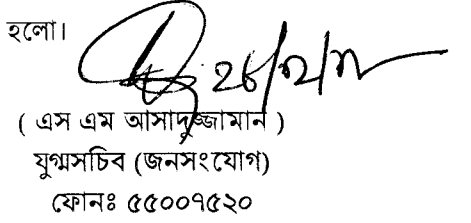 হলো।
( এস এম আসাদুজ্জামান )
যুগ্মসচিব (জনসংযোগ)
ফোনঃ ৫৫০০৭৫২০